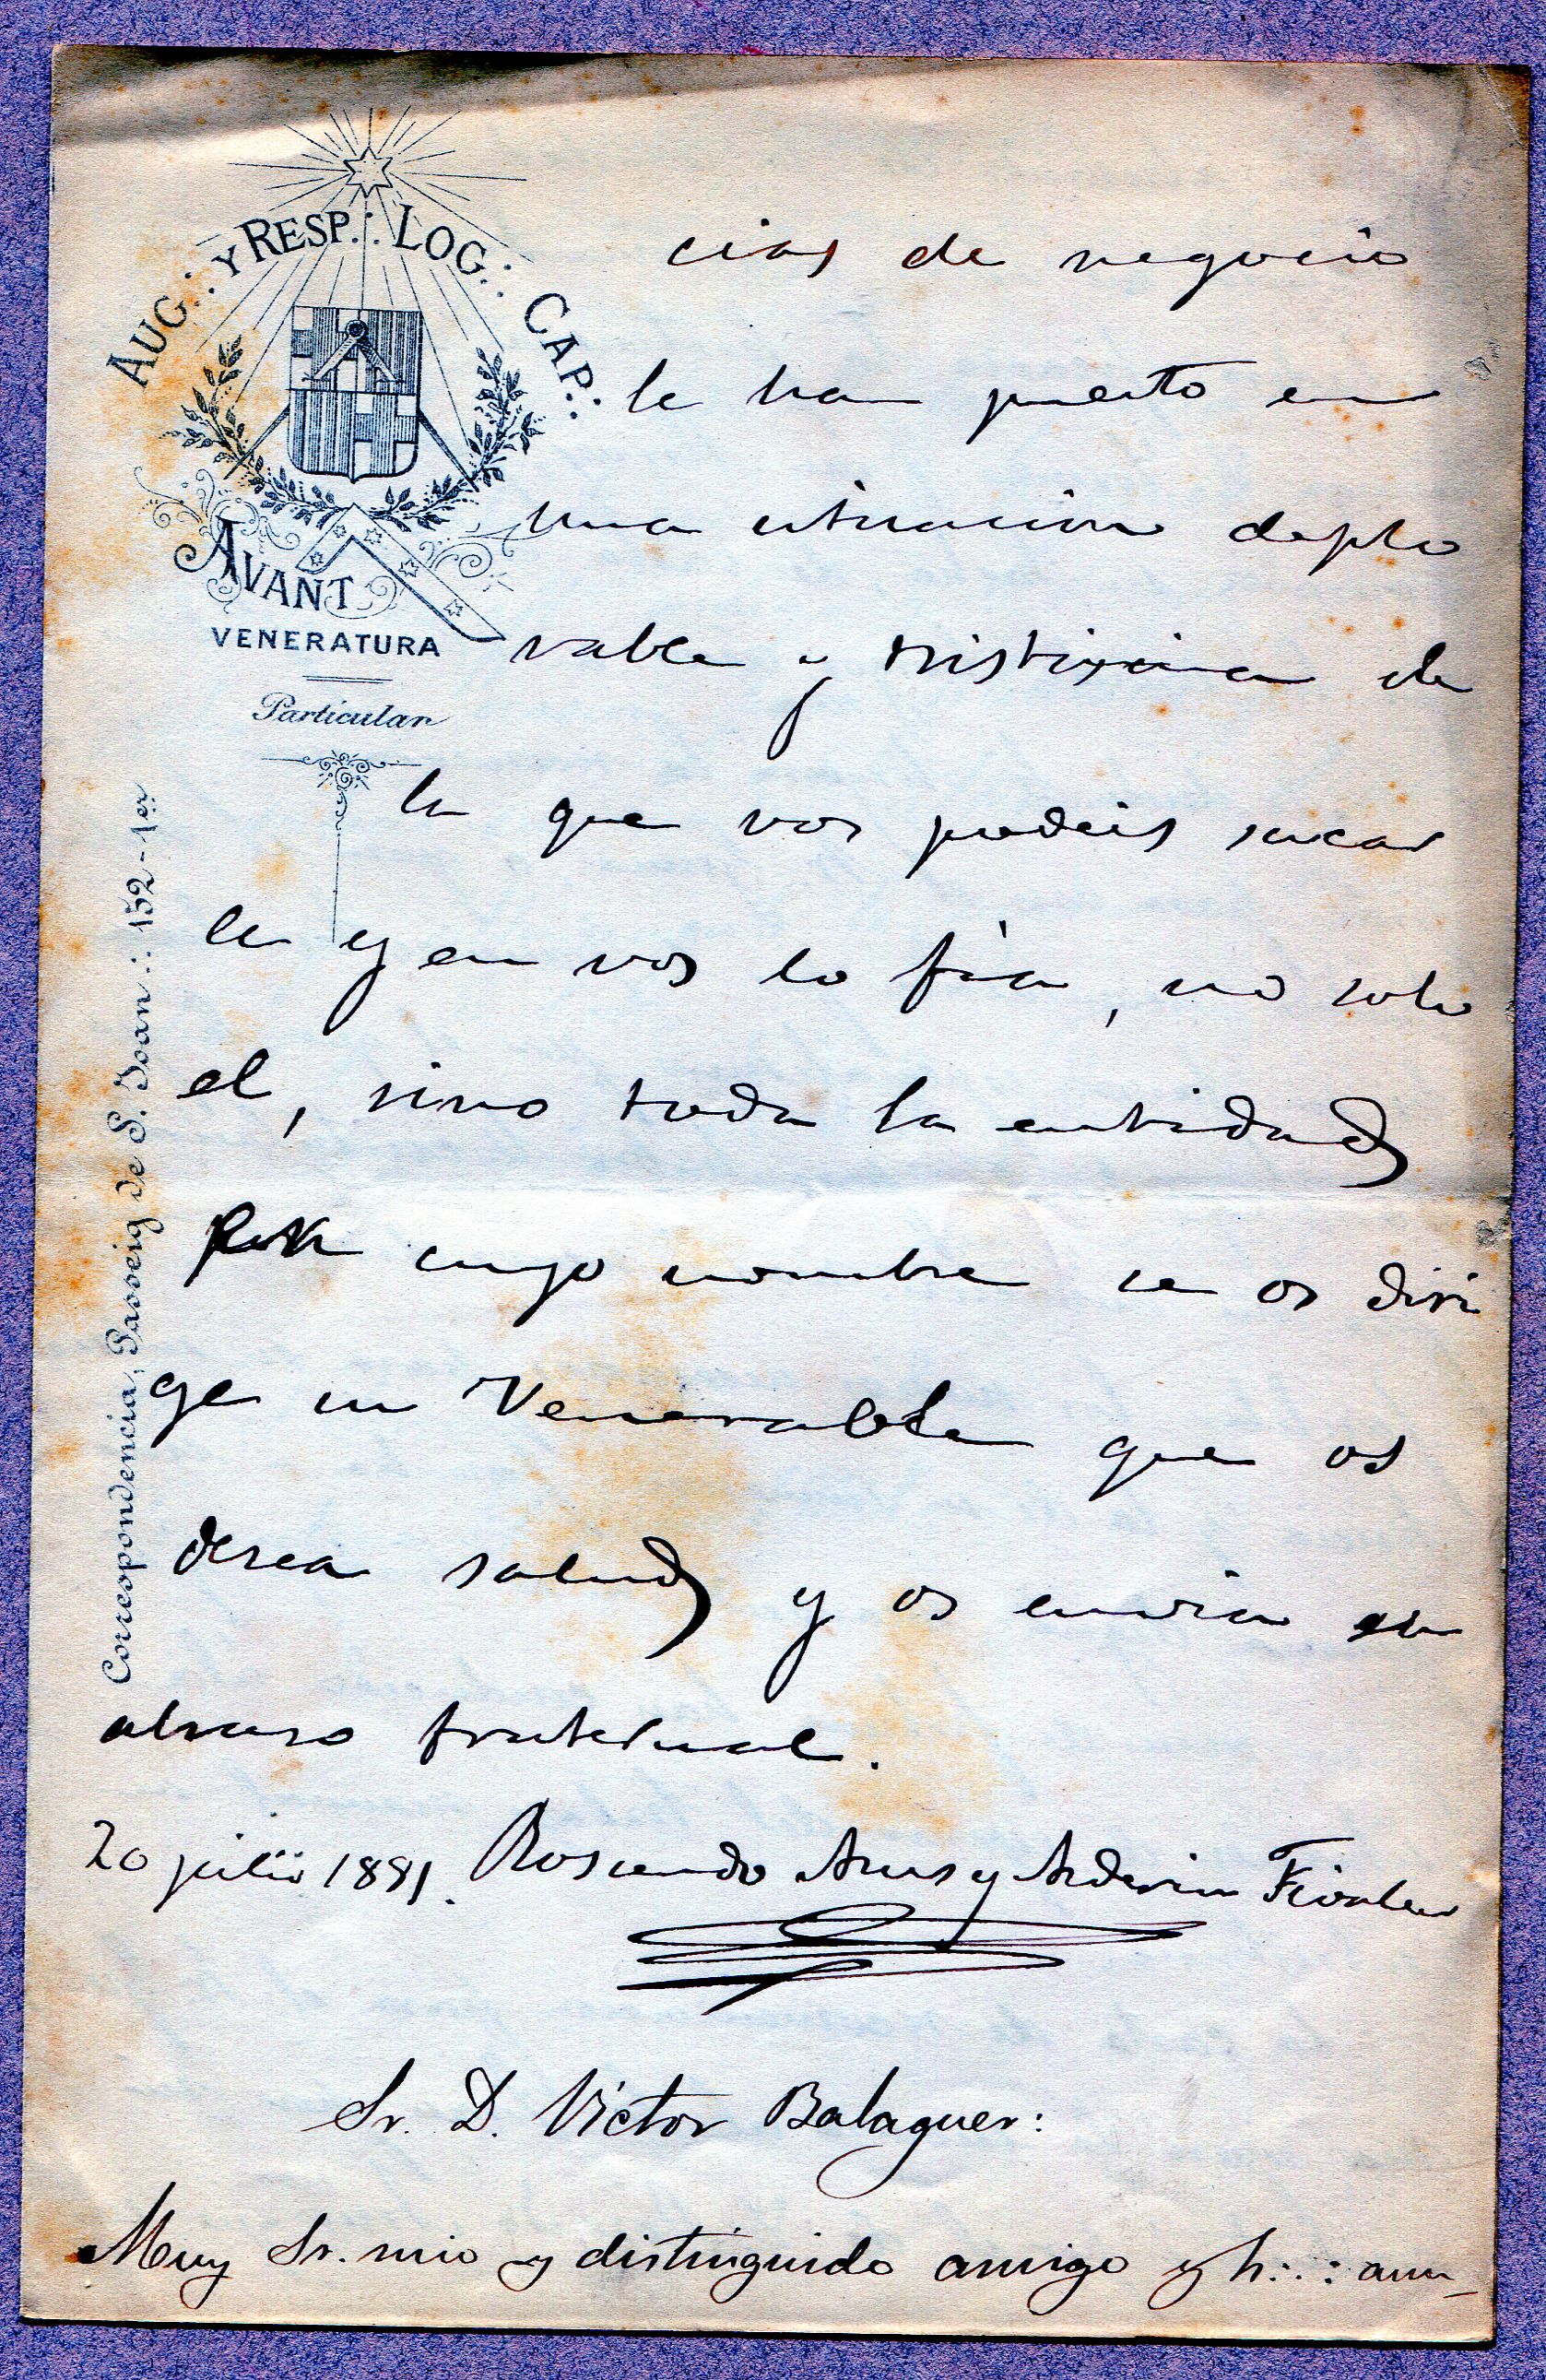 AUG.·. Y RESP.·. LOG.·. CAP.·.
AVANT
VENERATURA
Particular
Correspondencia, Passeig de S. Joan .: 152-1er
cias de negocio
le han puesto en
una situacion deplo
rable y tristisima de
la que vos podeis sacar
le y en vos lo fia, no solo
el, sino toda la entidad
en cuyo nombre se os diri
ge su Venerable que os
desea salud y os envia su
abraso fraternal.
20 julio 1881. Rosendo Arus y Arderiu Fivaller
Sr. D. Victor Balaguer:
Muy Sr. mio y distinguido amigo y h.·.: aun